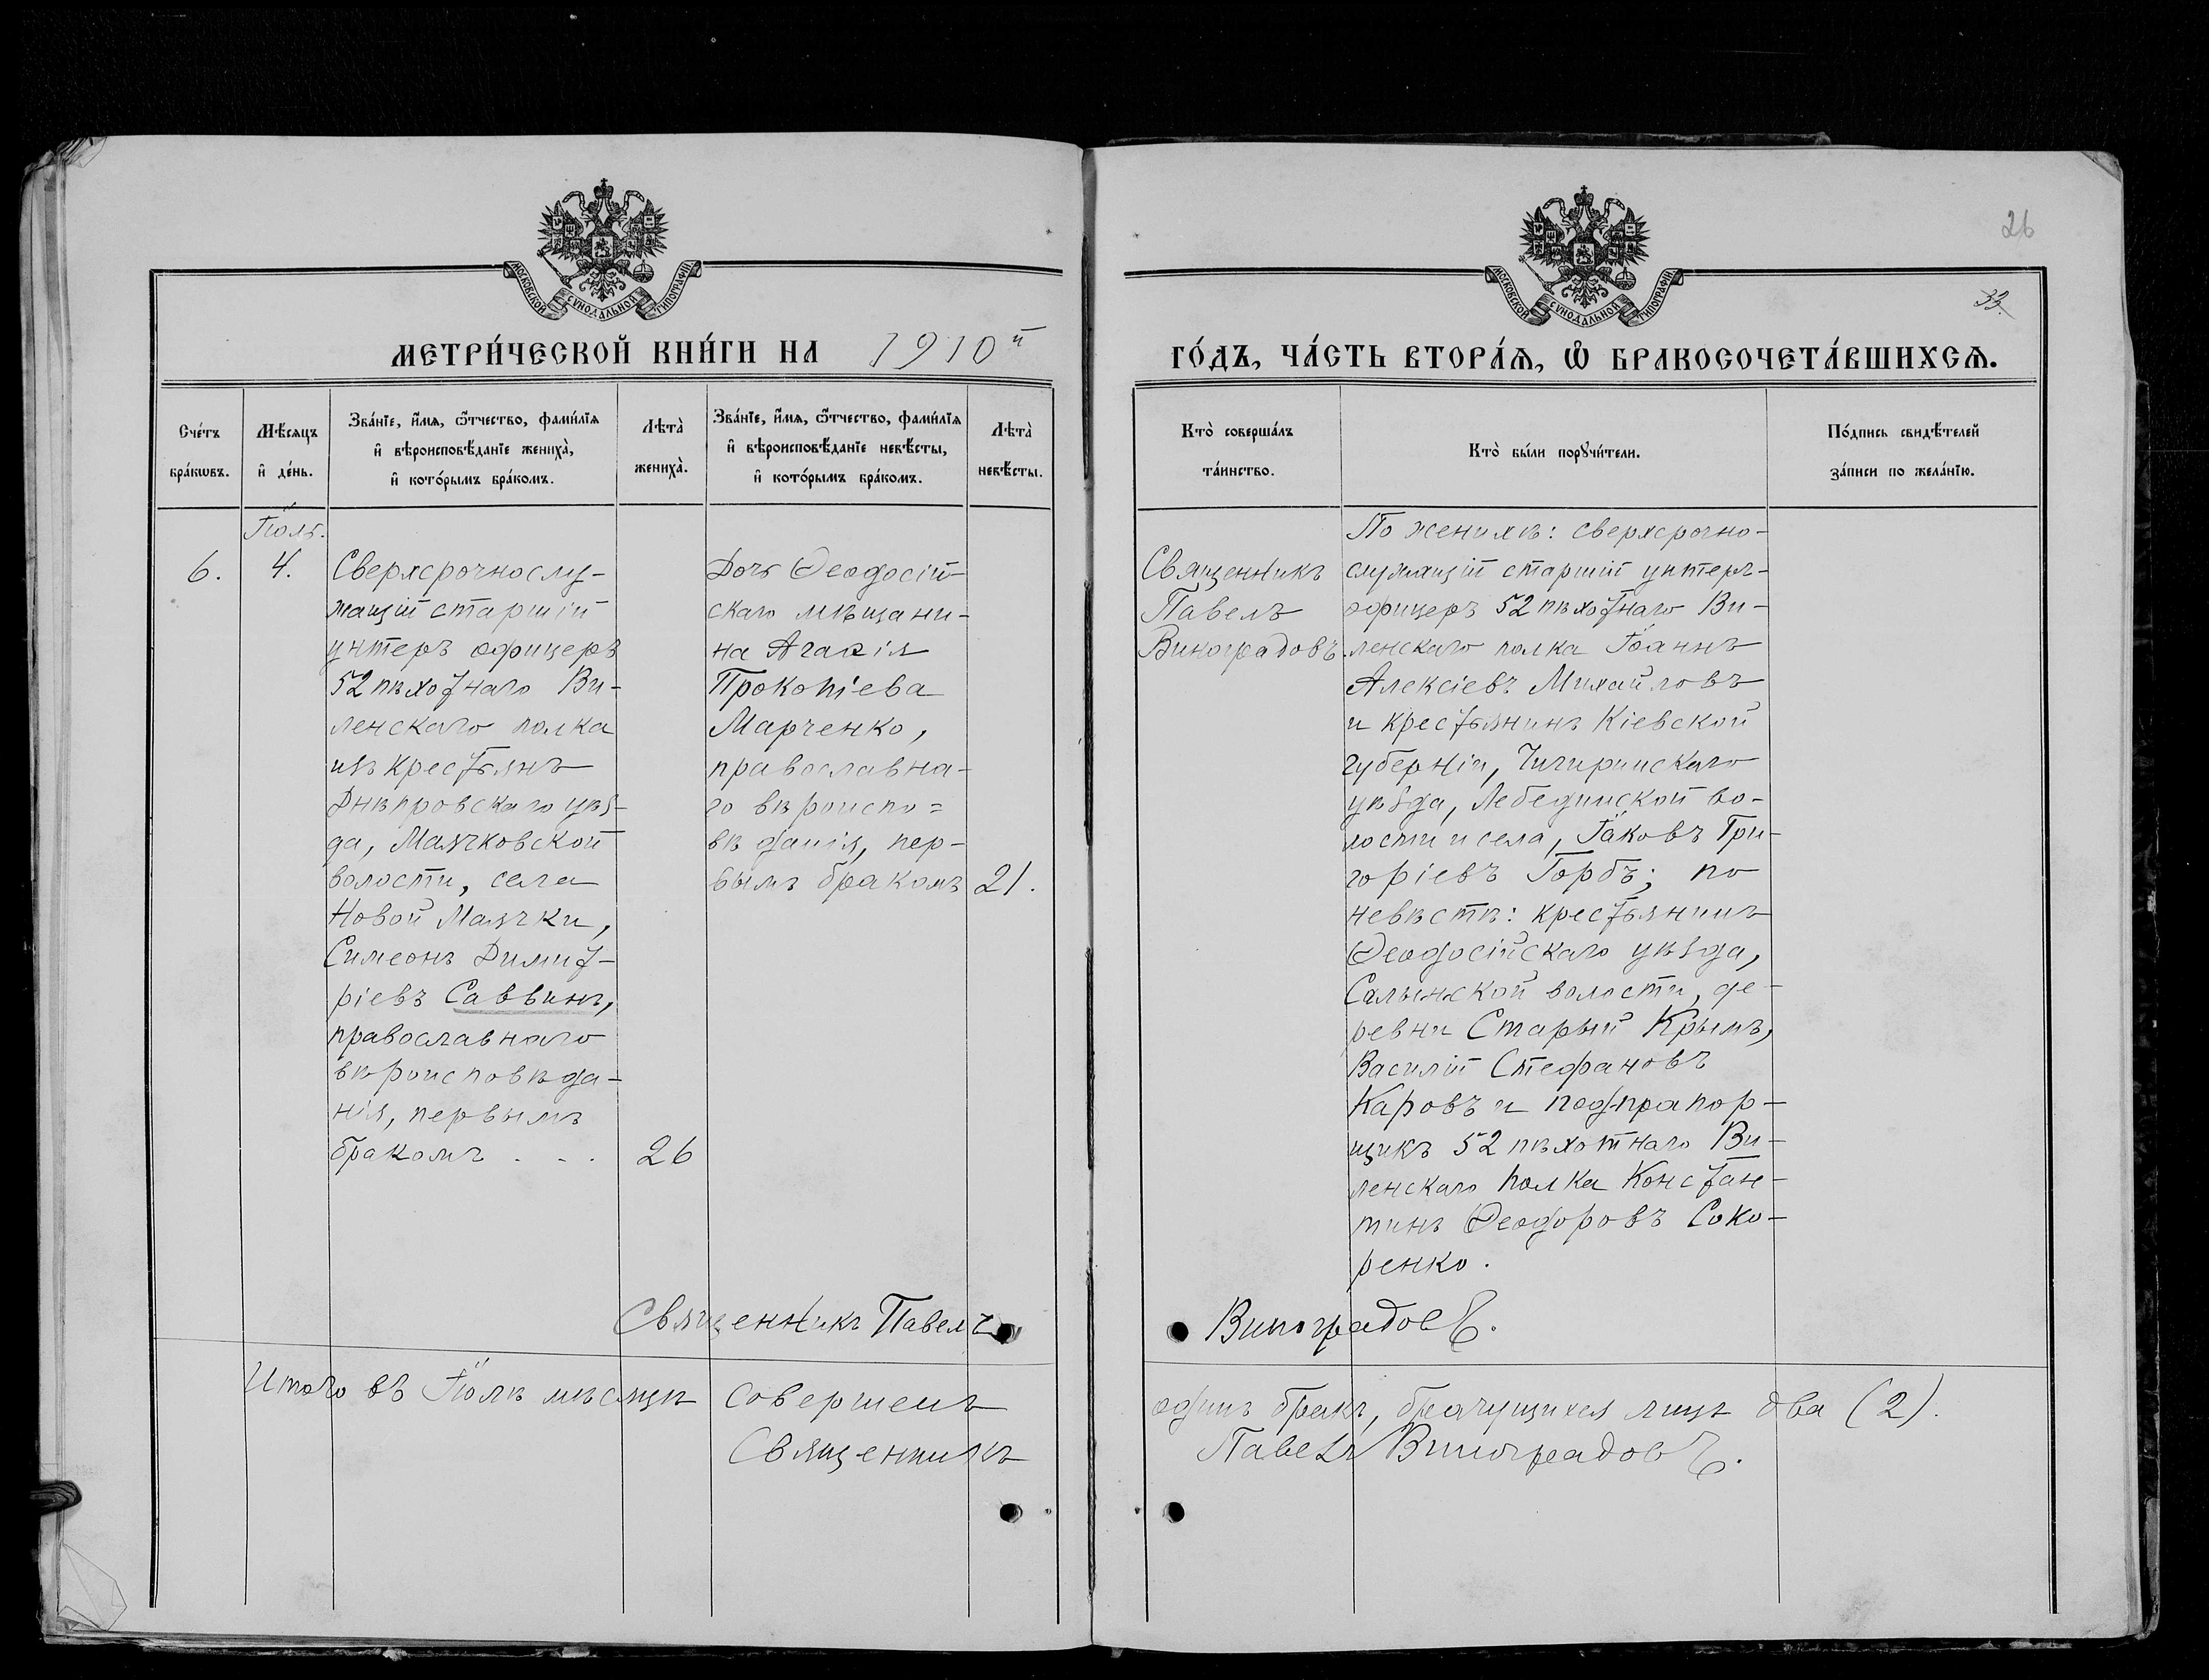 26
33.
МОСКОВСКОЙ СѴНОДАЛЬНОЙ ТИПОГРАФІИ
МОСКОВСКОЙ СѴНОДАЛЬНОЙ ТИПОГРАФІИ
МЕТРИ́ЧЕСКОЙ КНИ́ГИ НА 1910й
ГО́ДЪ, ЧА́СТЬ ВТОРА́Ѧ, Ѽ БРАКОСОЧЕТА́ВШИХСѦ.
Сче́тъ
бра́кωвъ.
Мѣ́сѧцъ
и҆ де́нь.
Зва́нїе, и҆́мѧ, ѻ҆́тчество, фами́лїѧ
и҆ вѣроисповѣ́данїе жениха̀,
и҆ кото́рымъ бра́комъ.
Лѣта̀
жениха̀.
Зва́нїе, и҆́мѧ, ѻ҆́тчество, фами́лїѧ
и҆ вѣроисповѣ́данїе невѣ́сты,
и҆ кото́рымъ бра́комъ.
Лѣта̀
невѣ́сты.
Кто̀ соверша́лъ
та́инство.
Кто̀ бы́ли порꙋчи́тели.
По́дпись свидѣ́телей
за́писи по жела́нїю.
Іюль.
6.
4.
Сверхсрочнослу-
жащій старшій
унтеръ офицеръ
52 пѣхотнаго Ви-
ленскаго полка
изъ крестьянъ
Днѣпровскаго уѣз-
да, Маячковской
волости, села
Новой Маячки,
Симеонъ Димит-
ріевъ Саввинъ,
православнаго
вѣроисповѣда-
нія, первымъ
бракомъ . - .
26
Дочь Ѳеодосій-
скаго мѣщани-
на Агаѳія
Прокопіева
Марченко,
православна-
го вѣроиспо=
вѣданія, пер-
вымъ бракомъ
21.
Священникъ
Павелъ
Виноградовъ.
По женихѣ: сверхсрочно-
служащій старшій унтеръ-
офицеръ 52 пѣхотнаго Ви-
ленскаго полка Іоаннъ
Алексіевъ Михайловъ
и крестьянинъ Кіевской
губерніи, Чигиринскаго
уѣзда, Лебединской во-
лости и села, Іаковъ Гри-
горіевъ Горбъ; по
невѣстѣ: крестьянинъ
Ѳеодосійскаго уѣзда,
Салынской волости, де-
ревни Старый Крымъ,
Василій Стефановъ
Каровъ и подпрапор-
щикъ 52 пѣхотнаго Ви-
ленскаго полка Констан-
тинъ Ѳеодоровъ Соко-
ренко.
Священникъ Павелъ Виноградовъ.
Итого въ Іюлѣ мѣсяцѣ совершенъ одинъ бракъ, брачущихся лицъ два (2).
Священникъ Павелъ Виноградовъ.